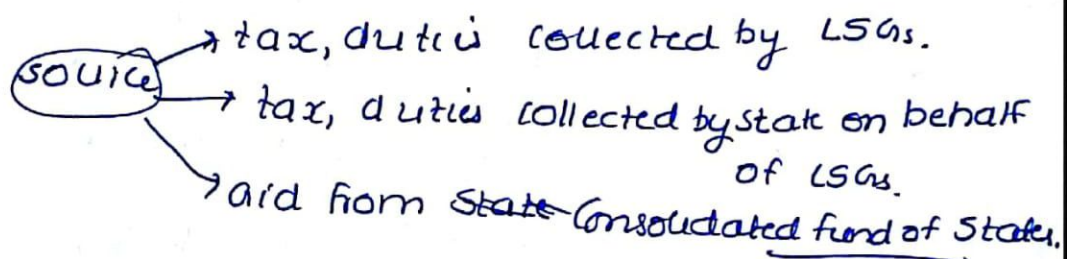 source
tax, duties collected by LSGs.
tax, duties collected by state on behalf
of LSGs.
aid from State Consolidated fund of States.